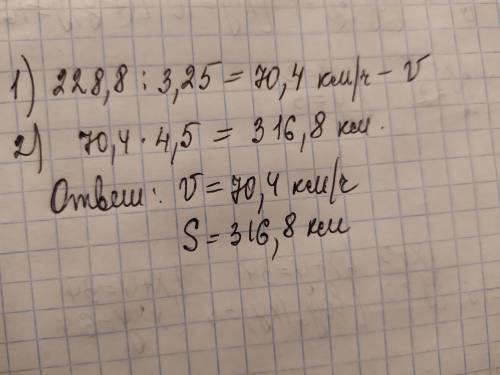 1) 228,8 : 3,25 = 70,4 км/ч - v
2) 70,4 · 4,5 = 316,8 км.
Ответ: v = 70,4 км/ч
S = 316,8 км